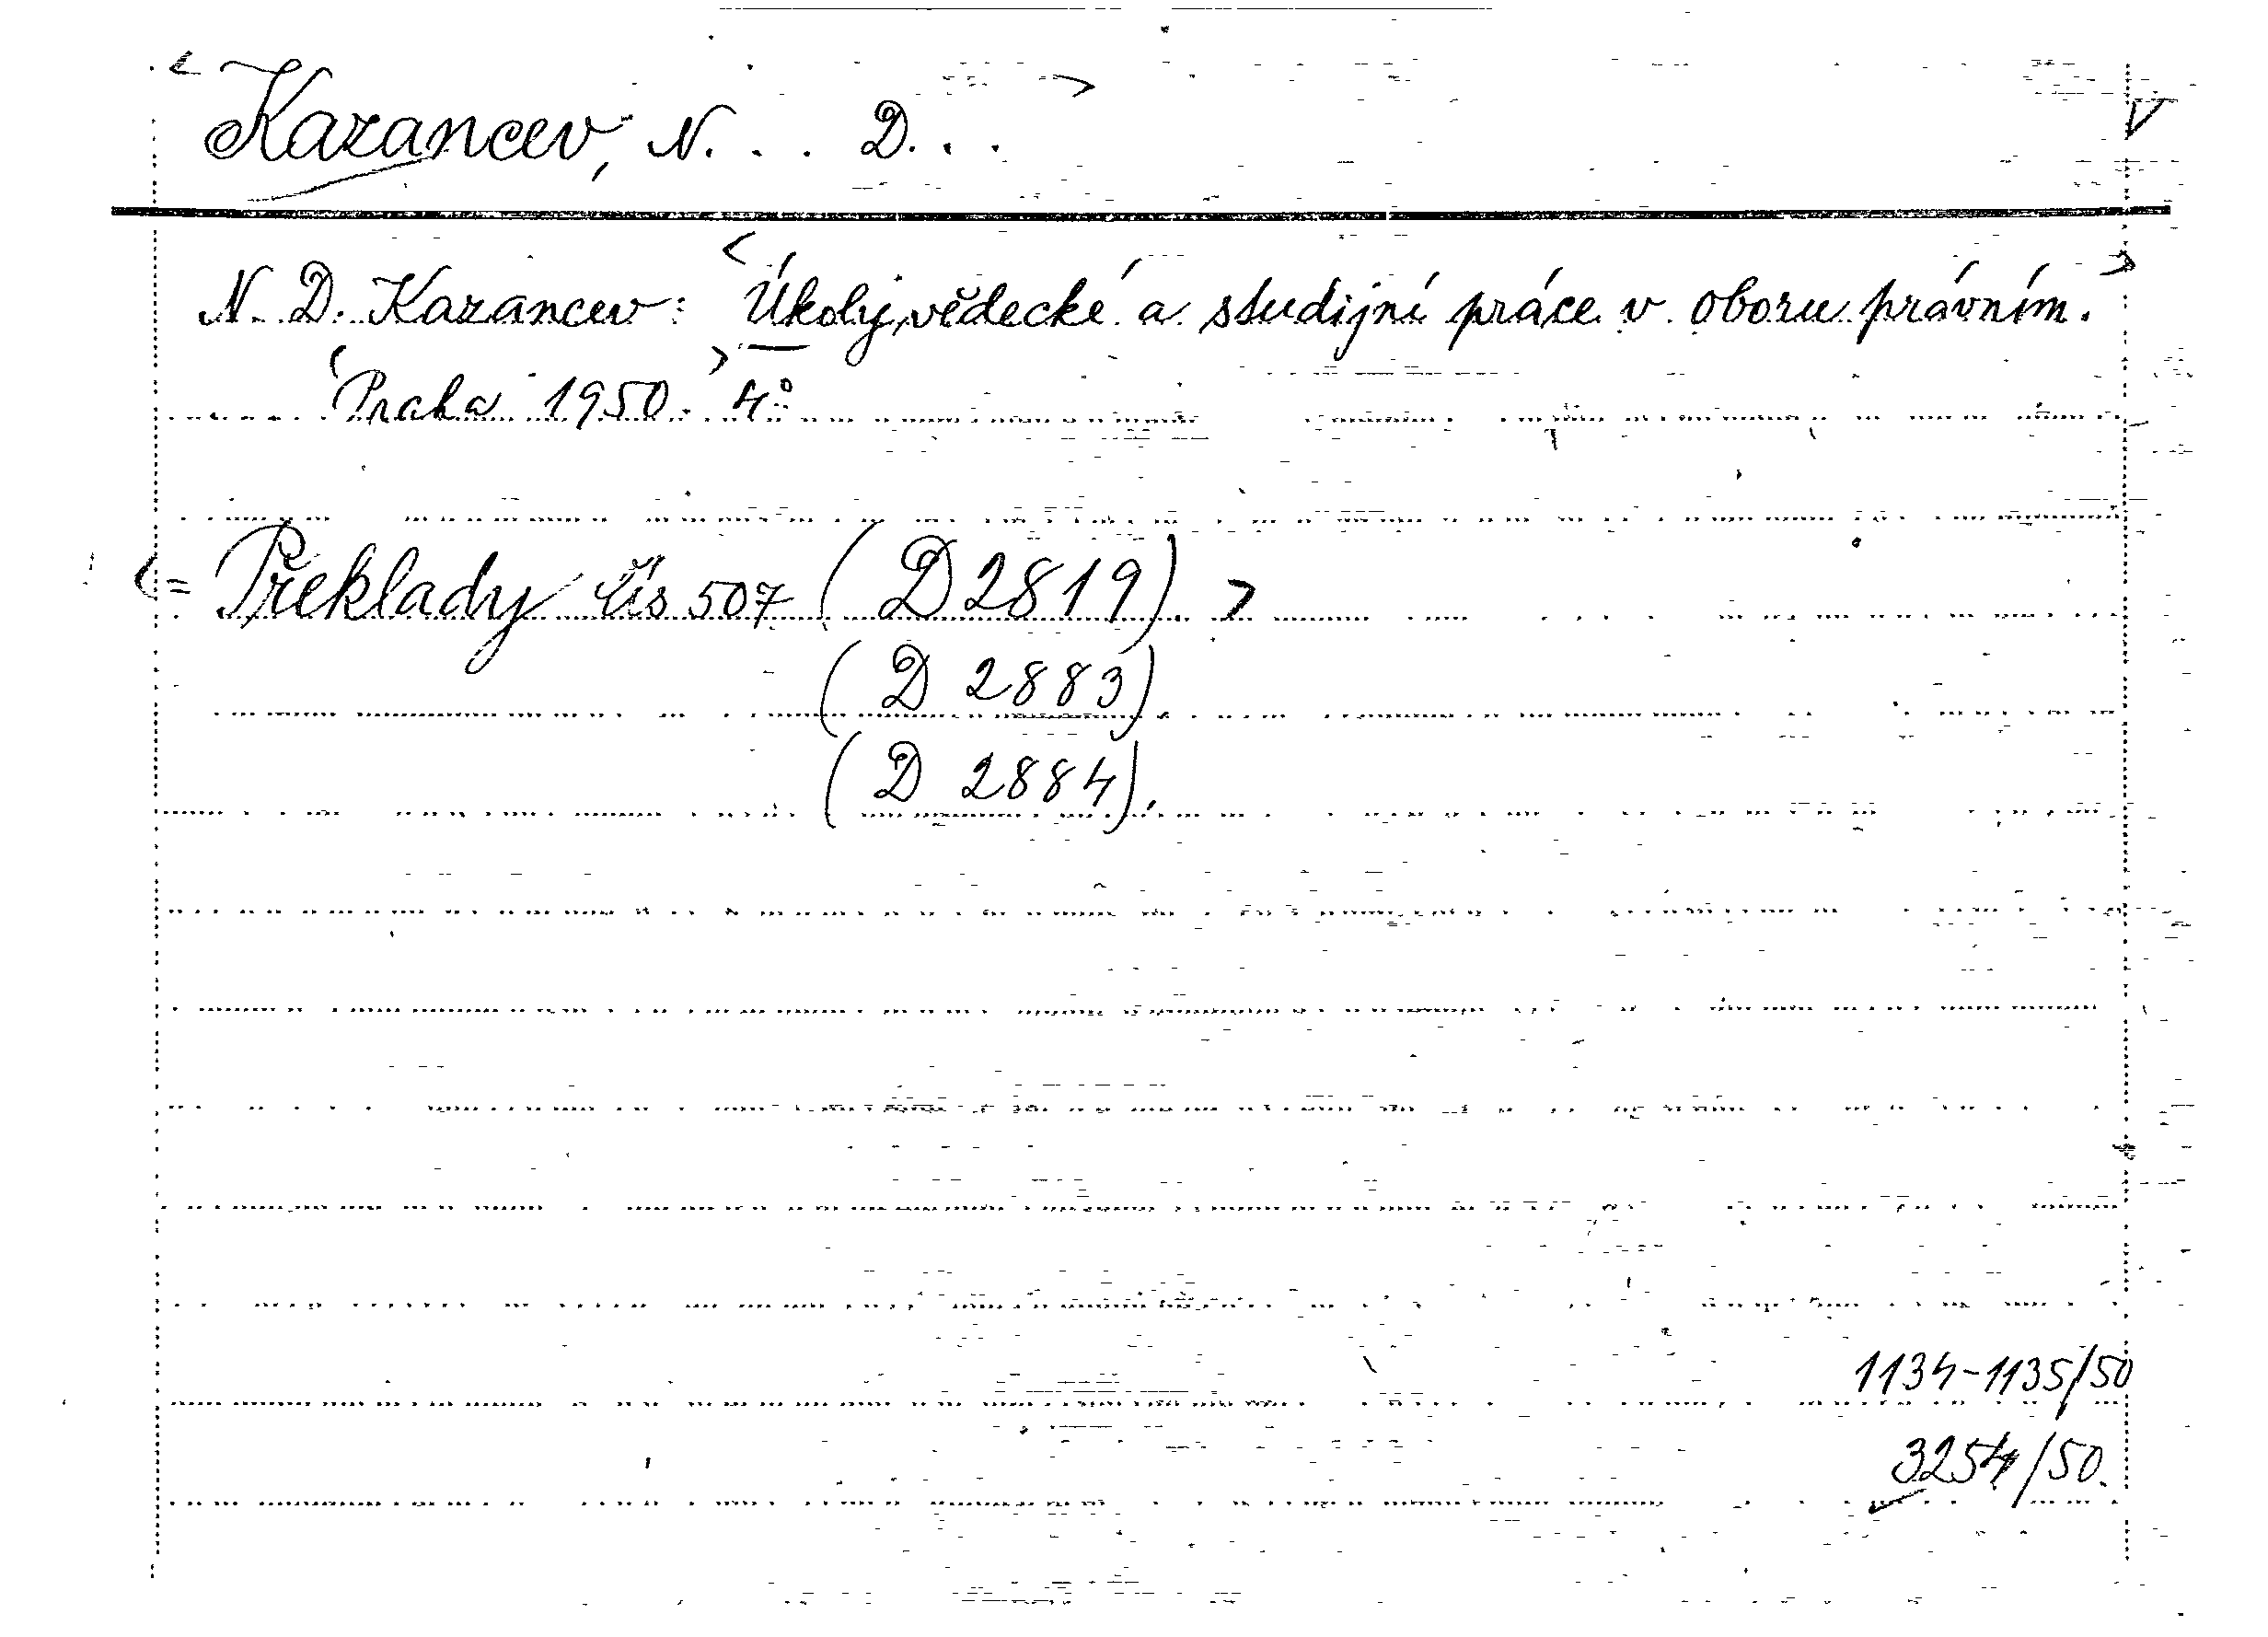 < Kazancev, N. . . D. . . >
V
N. D. Kazancev: <Úkoly vědecké a studijní práce v oboru právním.>
<Praha 1950.> 4°
<= Překlady čís 507 (D 2819) >
(D 2883)
(D 2884).
1134-1135/50
3254/50.